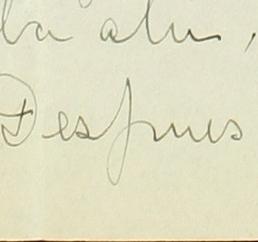 ba alu,
Despues